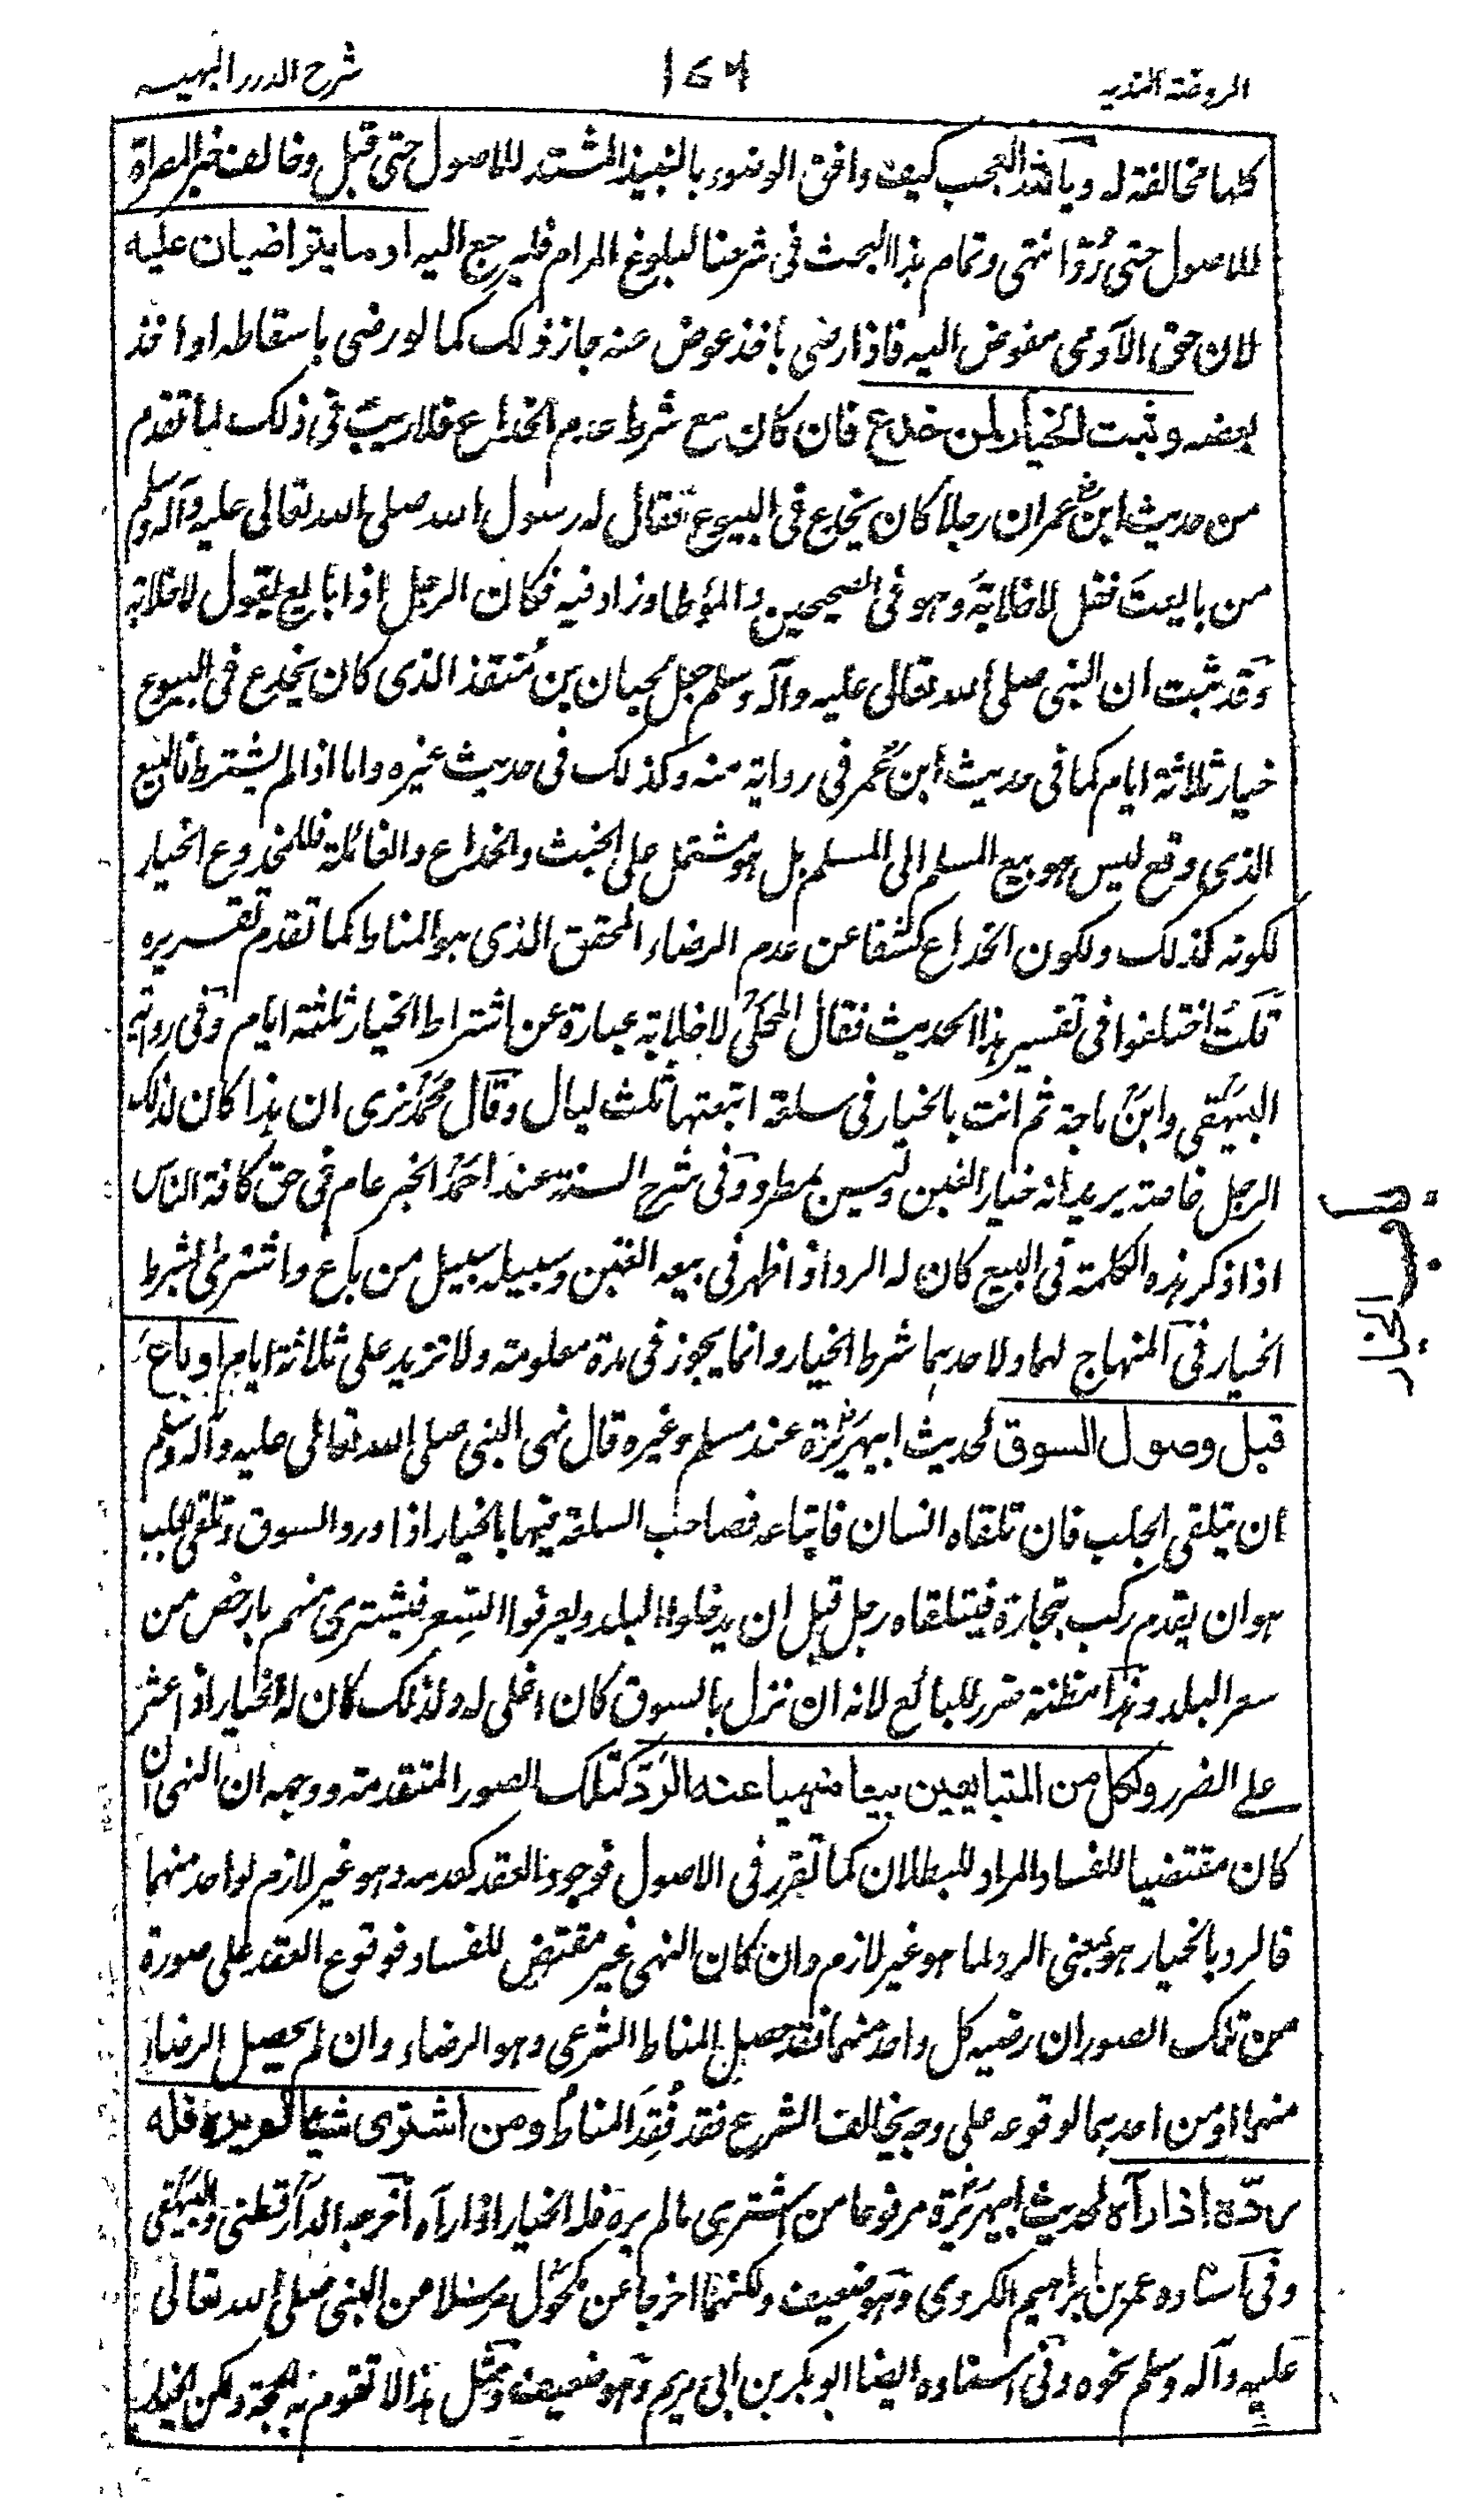 الروضة الندية
١٤٦
شرح الدرر البهيه
كلها مخالفة له ويا لله العجب كيف وافق الوضوء بالنبيذ المشتد للاصول حتى قبل وخالف خبر المصراة
للاصول حتى رُدّ انتهى وتمام هذا البحث في شرحنا لبلوغ المرام فليرجع اليه او ما يتراضيان عليه
لان حق الآدمي مفوض اليه فاذا رضي باخذ عوض عنه جاز ذلك كما لو رضي باسقاطه او اخذ
بعضه وثبت الخيار لمن خدع فان كان مع شرط عدم الخداع فلا ريب في ذلك لما تقدم
من حديث ابن عمر ان رجلا كان يخدع في البيوع فقال له رسول الله صلى الله تعالى عليه وآله وسلم
من بايعت فقل لا خلابة وهو في الصحيحين والمؤطا وزاد فيه فكان الرجل اذا بايع يقول لا خلابة
وقد ثبت ان النبي صلى الله تعالى عليه وآله وسلم جعل لحبان بن منقذ الذي كان يخدع في البيوع
خيار ثلاثة ايام كما في حديث ابن عمر في رواية منه وكذلك في حديث غيره واما اذا لم يشترط فالبيع
الذي وقع ليس هو بيع المسلم الى المسلم بل هو مشتمل على الخبث والخداع والغائلة فللمخدوع الخيار
لكونه كذلك ولكون الخداع كشفا عن عدم الرضاء المحقق الذي هو المناط كما تقدم تقريره
قلت اختلفوا في تفسير هذا الحديث فقال المحلي لا خلابة عبارة عن اشتراط الخيار ثلثة ايام وفي رواية
البيهقي وابن ماجة ثم انت بالخيار في سلعة ابتعتها ثلث ليال وقال محمد نرى ان هذا كان لذلك
الرجل خاصة يريد انه خيار الغبن وليس بمطرد وفي شرح السنة عند احمد الخبر عام في حق كافة الناس
اذا ذكر هذه الكلمة في البيع كان له الرد اذا ظهر في بيعه الغبن وسبيله سبيل من باع واشترط بشرط
الخيار في المنهاج لهما ولاحدهما شرط الخيار وانما يجوز في مدة معلومة ولا تزيد على ثلاثة ايام او باع
قبل وصول السوق لحديث ابيهريرة عند مسلم وغيره قال نهى النبي صلى الله تعالى عليه وآله وسلم
ان يتلقى الجلب فان تلقاه انسان فابتاعه فصاحب السلعة فيها بالخيار اذا ورد السوق وتلقي الجلب
هو ان يقدم ركب بتجارة فيتلقاه رجل قبل ان يدخلوا البلد ويعرفوا السِعر فيشتري منهم بارخص من
سعر البلد وهذا مظنة ضرر للبائع لانه ان نزل بالسوق كان اغلى له ولذلك كان له الخيار اذا عثر
على الضرر ولكل من المتبايعين بيعا منهيا عنه الردّ كتلك الصور المتقدمة ووجهه ان النهي ان
كان مقتضيا للفساد المرادف للبطلان كما تقرر في الاصول فوجود العقد كعدمه وهو غير لازم لواحد منهما
فالرد بالخيار هو بمعنى الرد لما هو غير لازم وان كان النهي غير مقتضٍ للفساد فوقوع العقد على صورة
من تلك الصور ان رضيه كل واحد منهما فقد حصل المناط الشرعي وهو الرضاء وان لم يحصل الرضاء
منهما او من احدهما لوقوعه على وجه يخالف الشرع فقد فُقِدَ المناط ومن اشترى شيئا لم يره فله
ردّه اذا رآه لحديث ابيهريرة مرفوعا من اشترى ما لم يره فله الخيار اذا رآه اخرجه الدارقطني والبيهقي
وفي اسناده عمر بن ابراهيم الكردي وهو ضعيف ولكنهما اخرجا عن مكحول مرسلا من النبي صلى الله تعالى
عليه وآله وسلم نحوه وفي اسناده ايضا ابو بكر بن ابي مريم وهو ضعيف ومثل هذا لا تقوم به الحجة ولكن الخيار